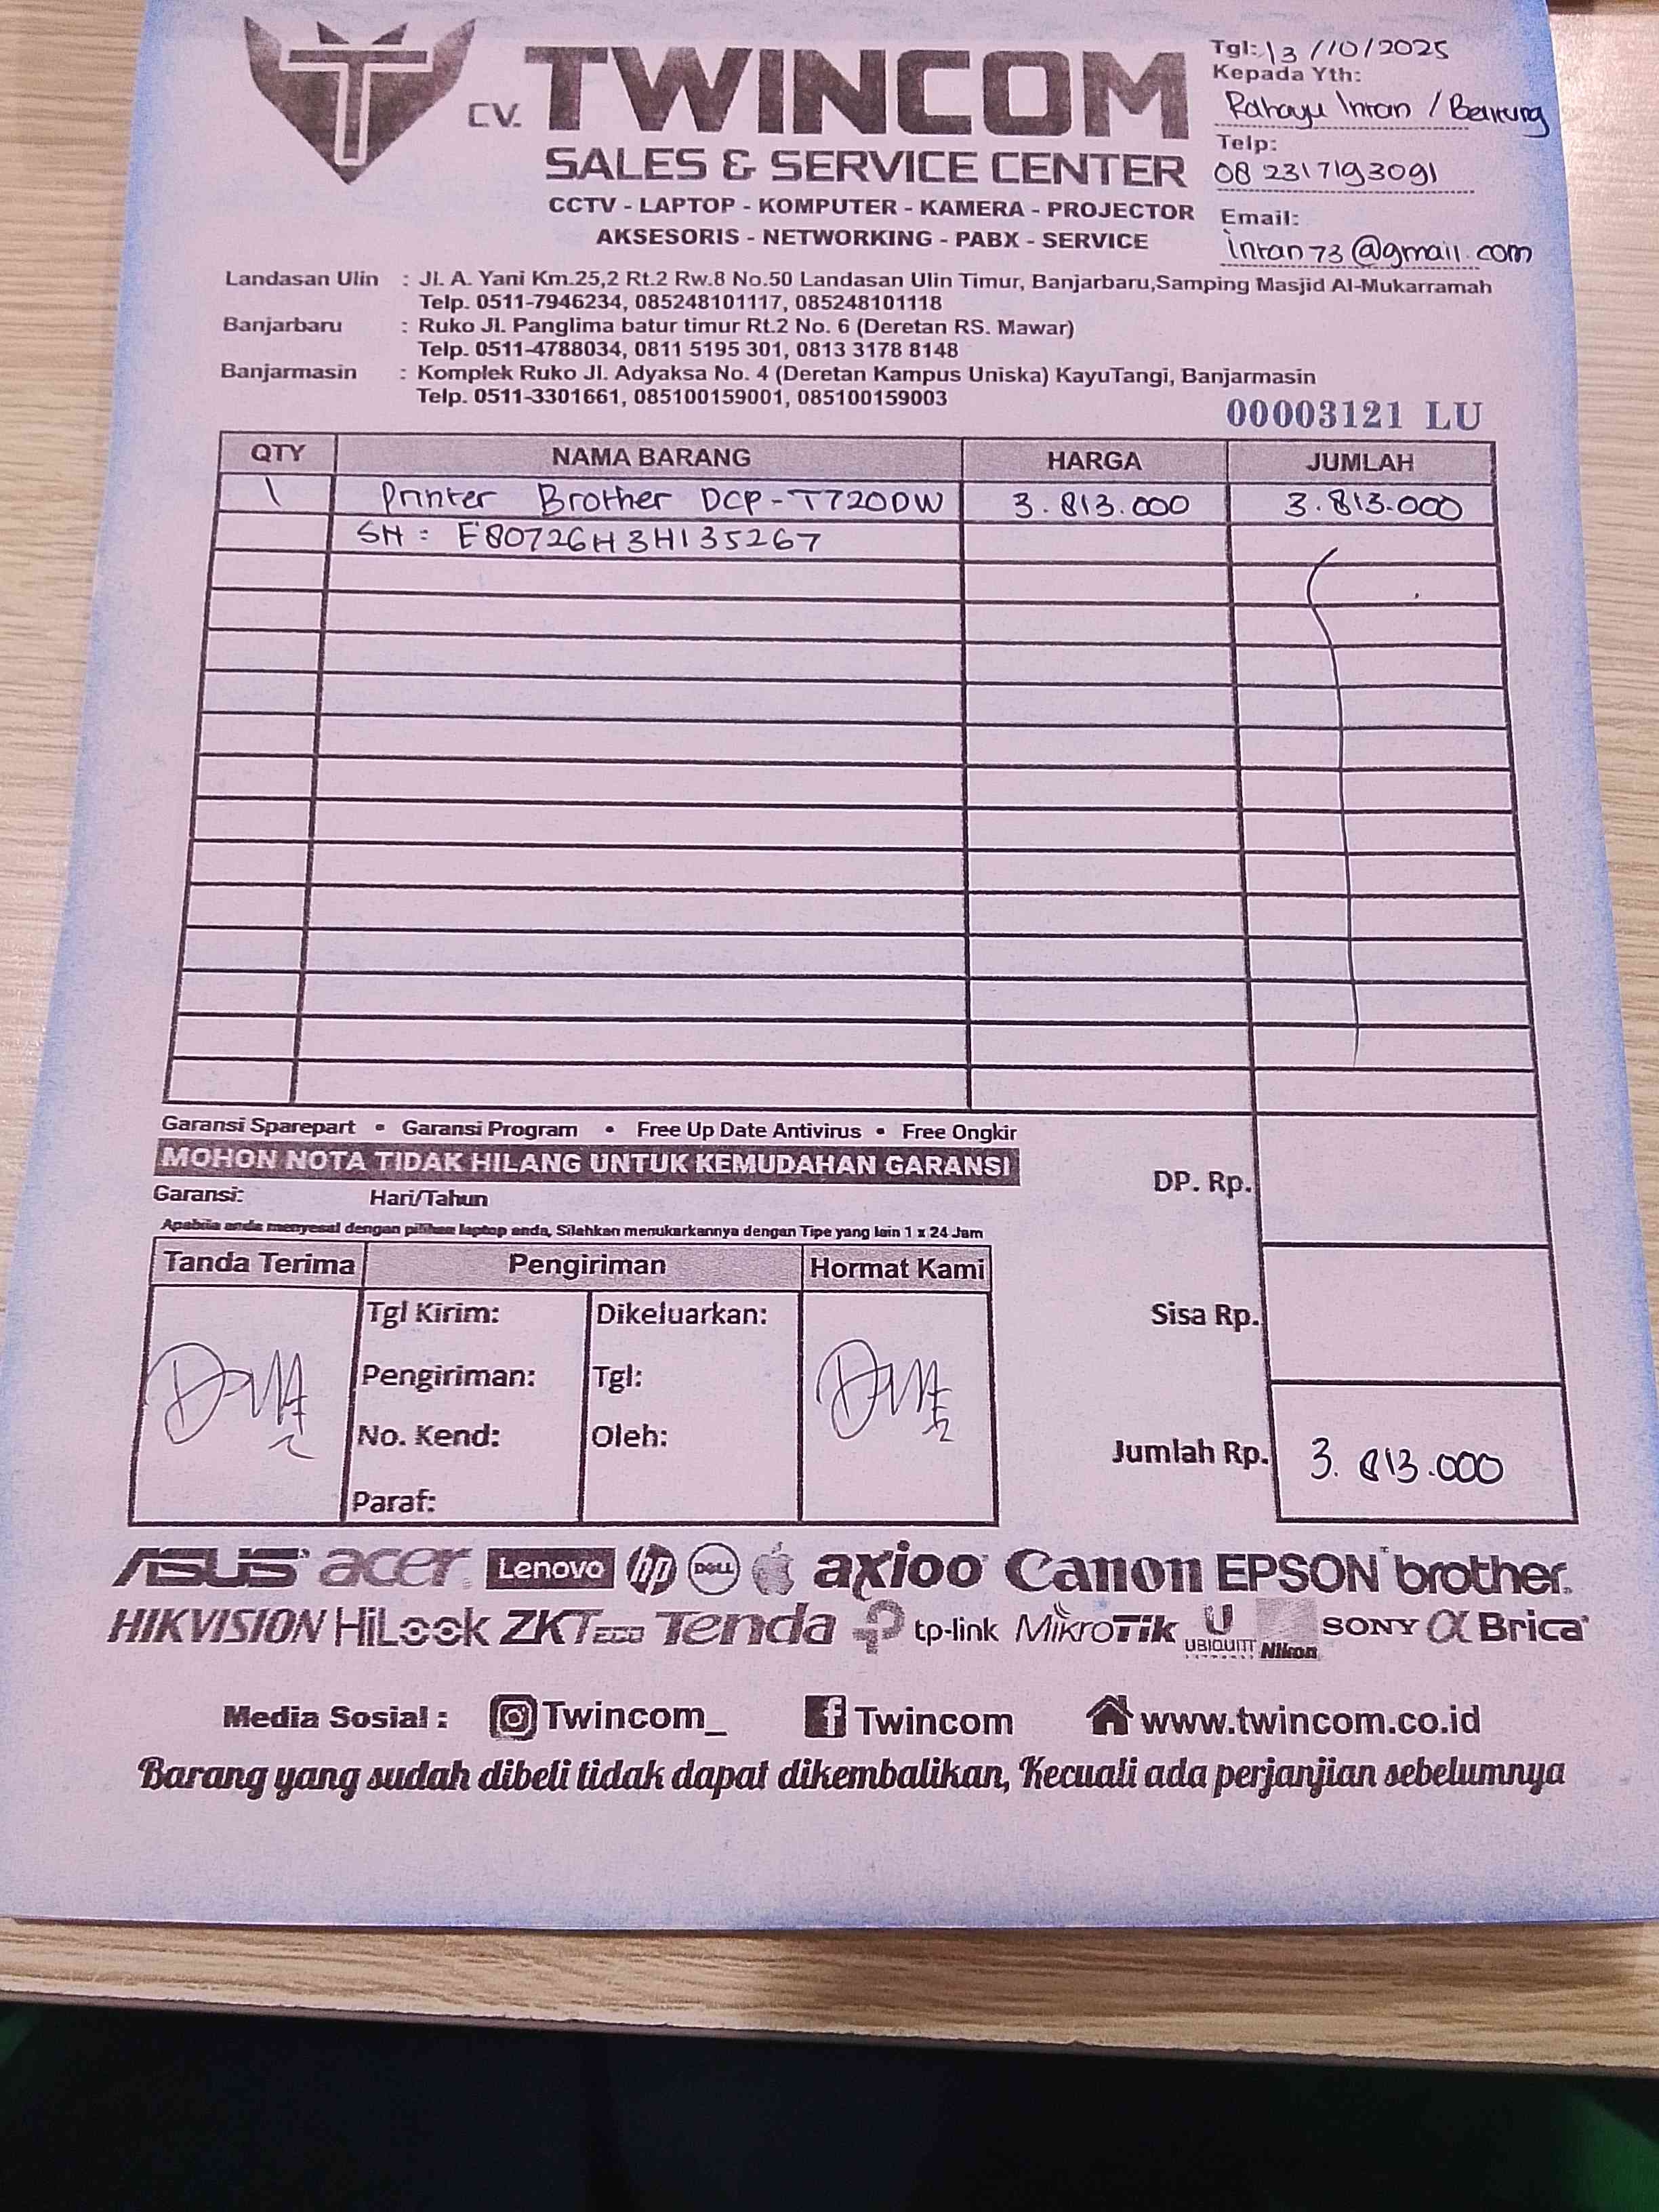 CV. TWINCOM
SALES & SERVICE CENTER
CCTV - LAPTOP - KOMPUTER - KAMERA - PROJECTOR
AKSESORIS - NETWORKING - PABX - SERVICE
Tgl: 13/10/2025
Kepada Yth:
Rahayu Intan /
Telp:
082317193091
Email:
intan73@gmail.com
Landasan Ulin : Jl. A. Yani Km.25,2 Rt.2 Rw.8 No.50 Landasan Ulin Timur, Banjarbaru,Samping Masjid Al-Mukarramah
Telp. 0511-7946234, 085248101117, 085248101118
Banjarbaru : Ruko Jl. Panglima batur timur Rt.2 No. 6 (Deretan RS. Mawar)
Telp. 0511-4788034, 0811 5195 301, 0813 3178 8148
Banjarmasin : Komplek Ruko Jl. Adyaksa No. 4 (Deretan Kampus Uniska) KayuTangi, Banjarmasin
Telp. 0511-3301661, 085100159001, 085100159003
00003121 LU
QTY NAMA BARANG HARGA JUMLAH
1 Printer Brother DCP-T720DW 3.813.000 3.813.000
SN : E80726H3H135267
Garansi Sparepart • Garansi Program • Free Up Date Antivirus • Free Ongkir
MOHON NOTA TIDAK HILANG UNTUK KEMUDAHAN GARANSI
Garansi: Hari/Tahun
Apabila anda menyesal dengan pilihan laptop anda, Silahkan menukarkannya dengan Tipe yang lain 1 x 24 Jam
DP. Rp.
Tanda Terima Pengiriman Hormat Kami
Tgl Kirim: Dikeluarkan:
Sisa Rp.
Pengiriman: Tgl:
No. Kend: Oleh:
Jumlah Rp. 3.813.000
Paraf:
ASUS acer Lenovo hp DELL axioo Canon EPSON brother
HIKVISION HiLook ZKTeco Tenda tp-link MikroTik UBIQUITI Nikon SONY α Brica
Media Sosial : Twincom_ Twincom www.twincom.co.id
Barang yang sudah dibeli tidak dapat dikembalikan, Kecuali ada perjanjian sebelumnya